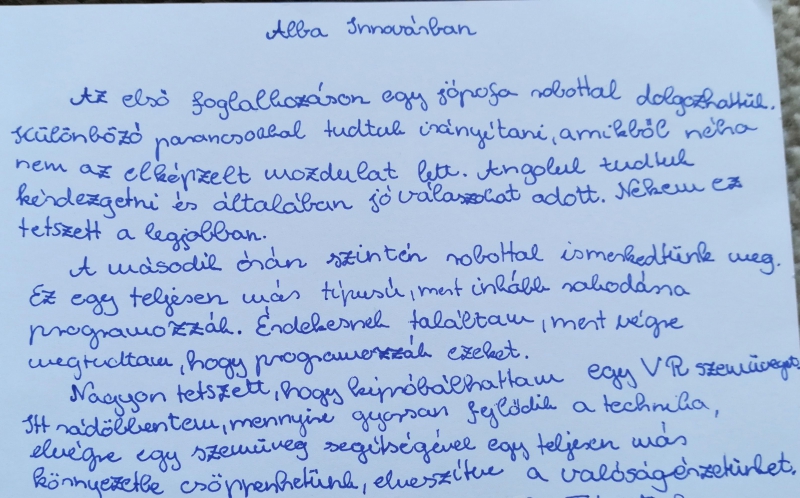 Alba Innovárban
Az első foglalkozáson egy jópofa robottal dolgozhattuk.
Különböző parancsokkal tudtuk irányítani, amikből néha
nem az elképzelt mozdulat lett. Angolul tudtuk
kérdezgetni és általában jó válaszokat adott. Nekem ez
tetszett a legjobban.
A második órán szintén robottal ismerkedtünk meg.
Ez egy teljesen más típusú, mert inkább rakodásra
programozzák. Érdekesnek találtam, mert végre
megtudtam, hogy programozzák ezeket.
Nagyon tetszett, hogy kipróbálhattam egy VR szemüveget.
Itt rádöbbentem, mennyire gyorsan fejlődik a technika,
elvégre egy szemüveg segítségével egy teljesen más
környezetbe csöppenhetünk, elveszítve a valóságérzetünket.